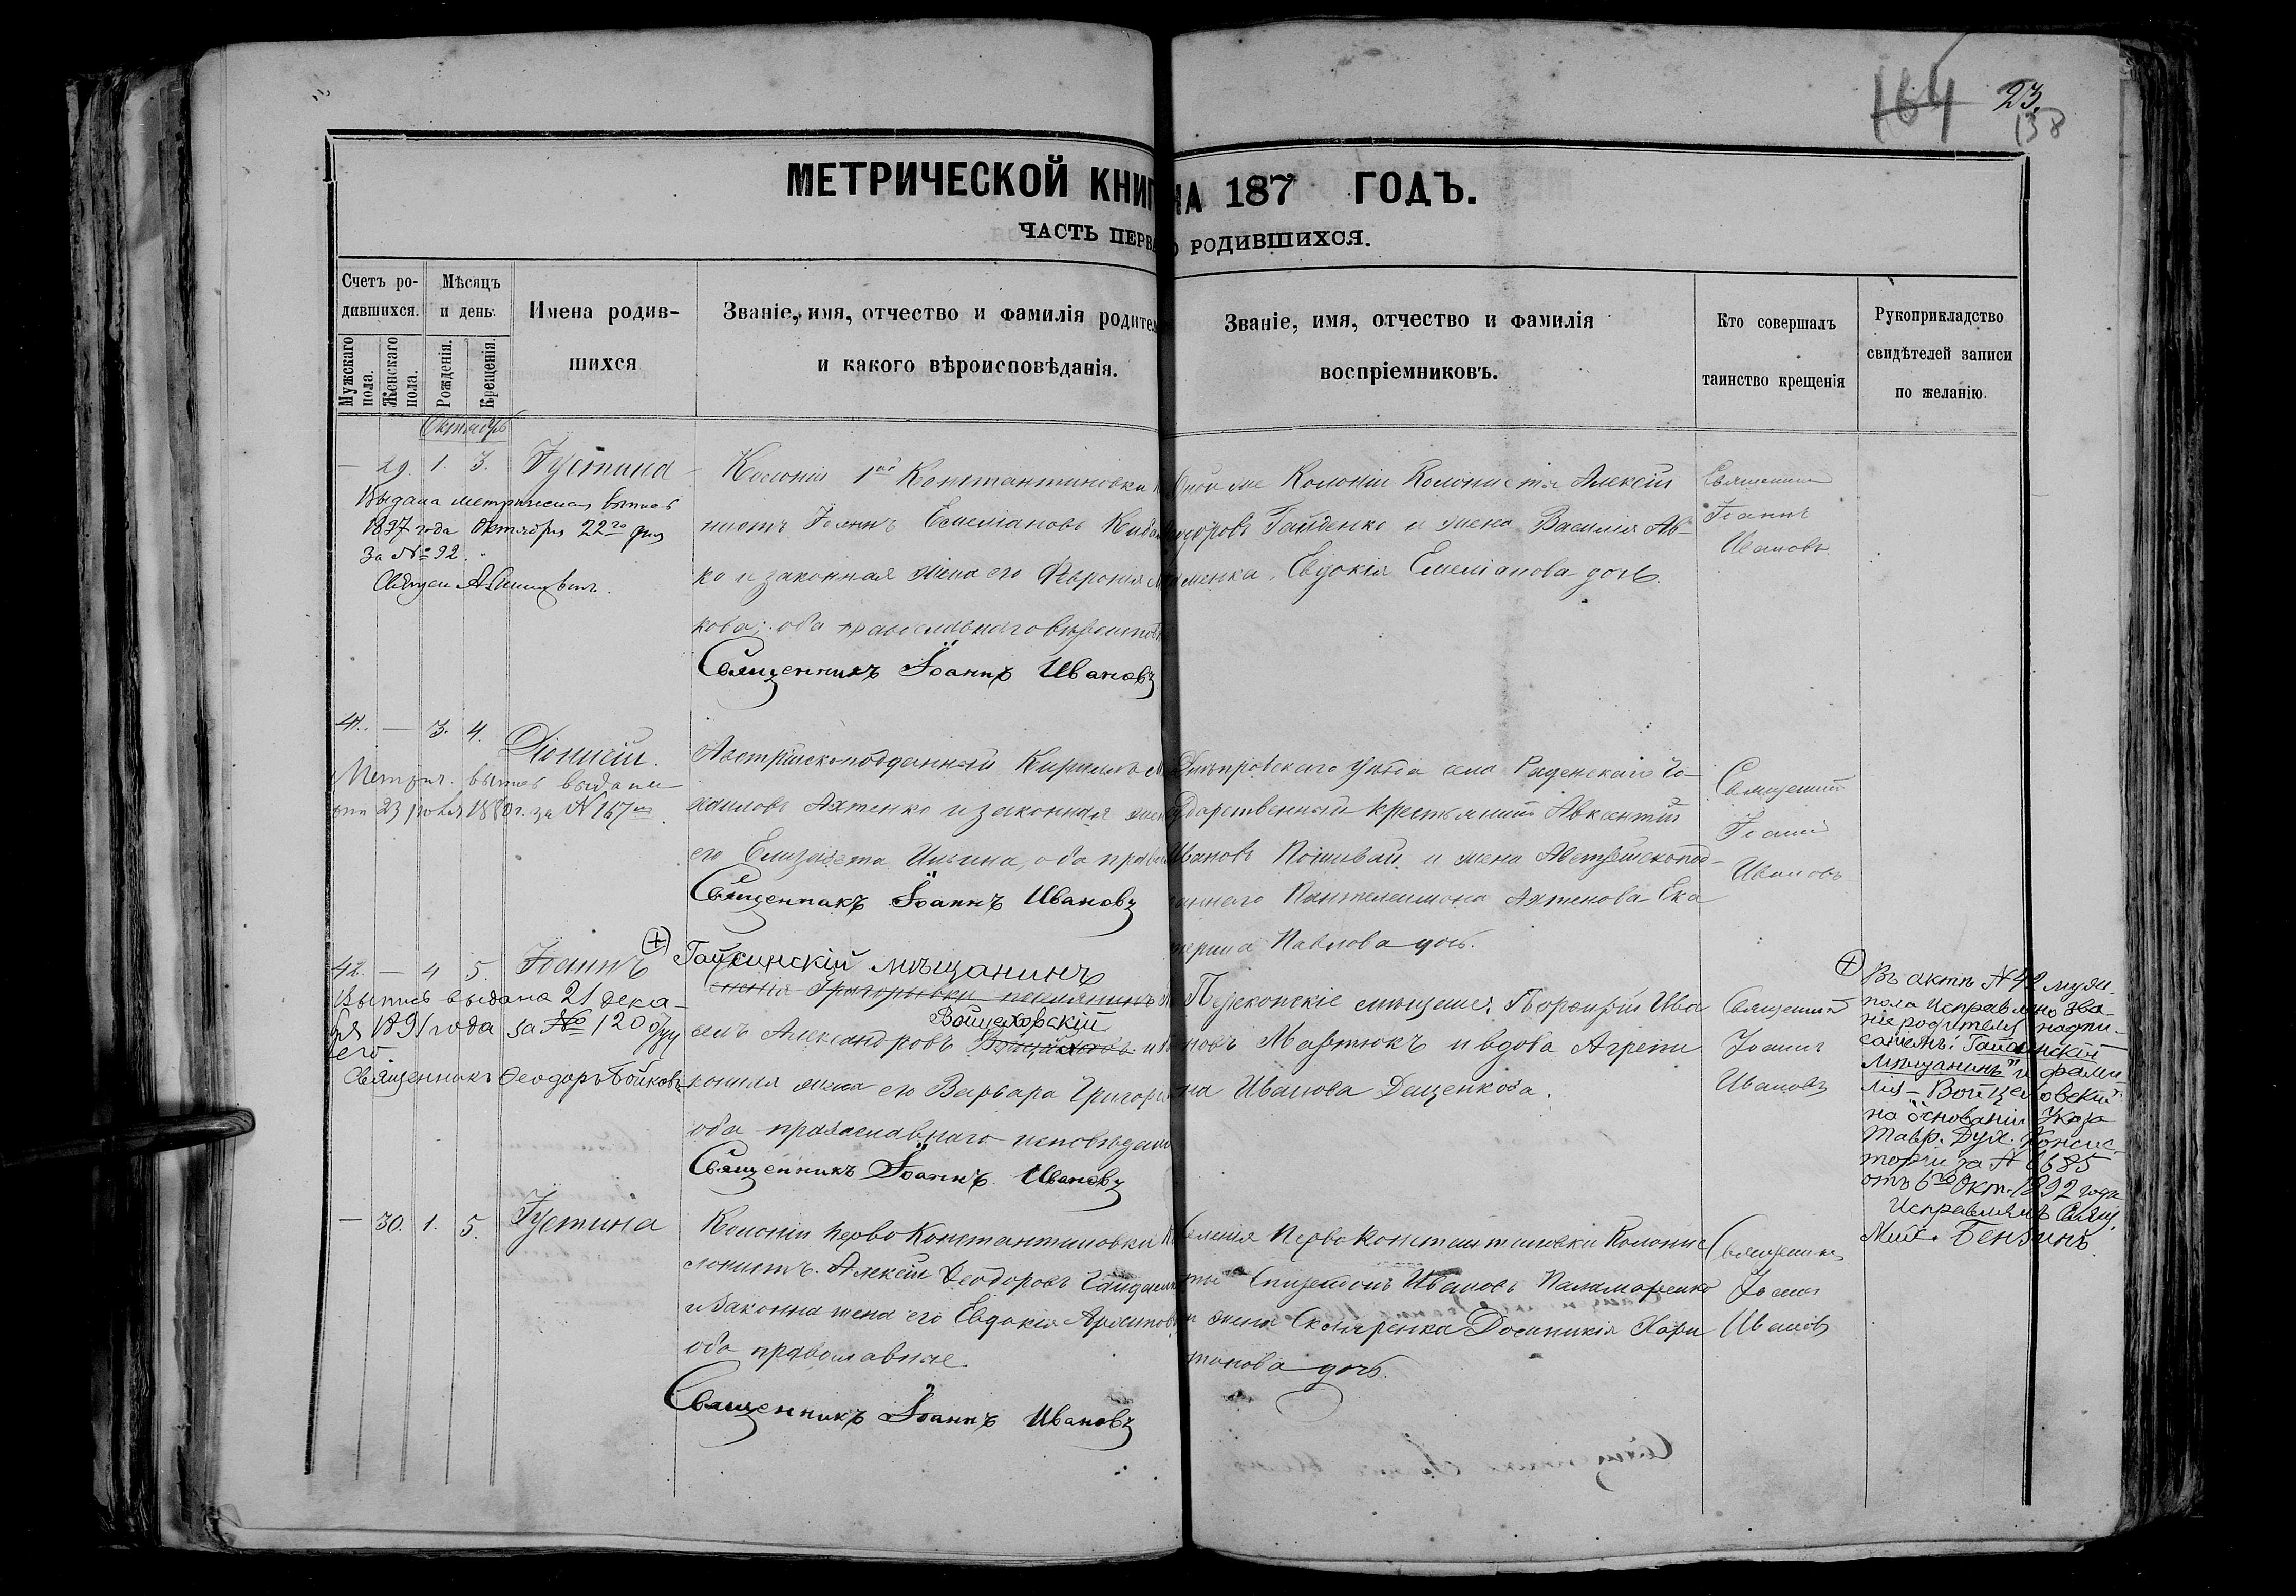 164 23.
138
МЕТРИЧЕСКОЙ КНИГ НА 187 ГОДЪ.
ЧАСТЬ ПЕРВА О РОДИВШИХСЯ.
Счетъ ро-
дившихся.
Мужскаго пола.
Женскаго пола.
Мѣсяцъ
и день.
Рожденія.
Крещенія.
Имена родив-
шихся
Званіе, имя, отчество и фамилія родител
и какого вѣроисповѣданія.
Званіе, имя, отчество и фамилія
воспріемниковъ.
Кто совершалъ
таинство крещенія
Рукоприкладство
свидѣтелей записи
по желанію.
Октябрь
— 29. 1. 3. Іустина
Выдана метрическая выпись
1897 года Октября 22го дня
За № 92.
Колоніи 1ой Константиновки
нистъ Іоаннъ Емеліановъ
ко и законная жена его Февронія
кова; оба православнаго
Священникъ Іоаннъ Ивановъ
Колоніи Колониста Алексій
Гайденко и жена Василія Ав-
менка, Евдокія Емеліанова дочь.
Священникъ
Іоаннъ
Ивановъ
41. — 3. 4. Діонисій.
Метрич. выпись выдана
23 1880 г. за № 167
Австрійскоподданный Кириллъ
хаиловъ Яхтенко и законная
его Елизавета Ильина, оба
Священникъ Іоаннъ Ивановъ
Днѣпровскаго уѣзда села
ударственный крестьянинъ Авксентій
Ивановъ и жена Австрійскопод-
аннаго Пантелеимона Яхтенкова Ека
терина Павлова дочь.
Священникъ
Іоаннъ
Ивановъ
42. — 4 5. Іоаннъ
Выпись выдана 21 дека-
бря 1891 года за № 120
его
Священникъ Ѳеодоръ Бойковъ
Гайсинскій мѣщанинъ
Григорьевки
Войцеховскій
Александровъ
жена его Варвара
оба православнаго исповѣдан
Священникъ Іоаннъ Ивановъ
Перекопскіе мѣщане: Порфирій Ива
новъ Мартюкъ и вдова Агрепи
на Иванова Даценкова.
Священникъ
Іоаннъ
Ивановъ
Въ актѣ № 42 муж.
пола исправлено зва-
ніе родителя надпи-
саніемъ: Гайсинскій
мѣщанинъ" и фами
лія – Войцеховскій
на основаніи Указа
Тавр. Дух. Консис-
торіи за № 6685
отъ 6го Окт. 1892 года
Исправлялъ Свящ.
Мих. Бензинъ.
— 30. 1. 5. Іустина
Колоніи Перво Константиновки
лонистъ Алексій Ѳеодоровъ
и законна жена его Евдокія
оба православные.
Священникъ Іоаннъ Ивановъ
еленія Перво Константиновки Колонис
ты Ивановъ Паламаренко
жена Скляренка Домникія Хари
тонова дочь.
Священникъ
Іоаннъ
Ивановъ